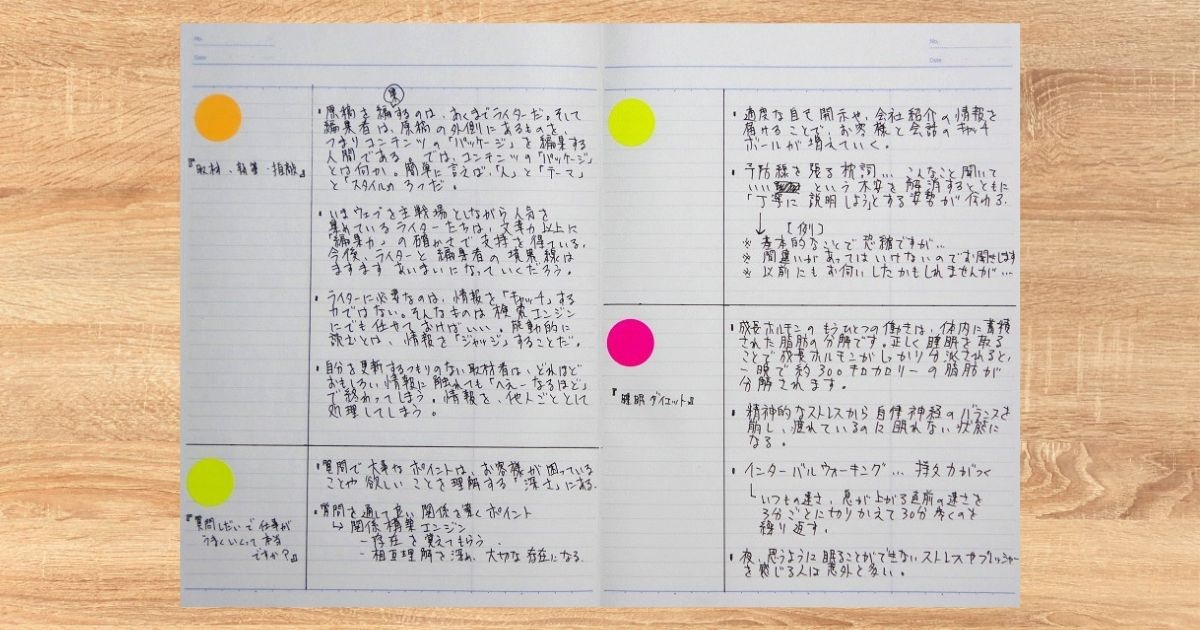 No.
Date
『取材・執筆・推敲』
集
・原稿を編するのは、あくまでライターだ。そして
編集者は、原稿の外側にあるものを、
つまりコンテンツの「パッケージ」を編集する
人間である。では、コンテンツの「パッケージ」
とは何か。簡単に言えば、「人」と「テーマ」
と「スタイル」の3つだ。
・いまウェブを主戦場としながら人気を
集めているライターたちは、文章力以上に
「編集力」の確かさで支持を得ている。
今後、ライターと編集者の境界線は
ますますあいまいになっていくだろう。
・ライターに必要なのは、情報を「キャッチ」する
力ではない。そんなものは検索エンジン
にでも任せておけばいい。能動的に
読むとは、情報を「ジャッジ」することだ。
・自分を更新するつもりのない取材者は、どれほど
おもしろい情報に触れても「へえーなるほど」
で終わってしまう。情報を、他人ごととして
処理してしまう。
『質問しだいで仕事が
うまくいくって本当
ですか?』
・質問で大事なポイントは、お客様が困っている
ことや欲しいことを理解する「深さ」にある。
・質問を通して良い関係を築くポイント
↳ 関係構築エンジン
- 存在を覚えてもらう
- 相互理解を深め、大切な存在になる。
No.
Date
・適度な自己開示や、会社紹介の情報を
届けることで、お客様と会話のキャッチ
ボールが増えていく。
・予防線を張る枕詞…こんなこと聞いて
いい という不安を解消するとともに
「丁寧に説明しよう」とする姿勢が伝わる。
↓ 【例】
※ 基本的なことで恐縮ですが…
※ 間違いがあってはいけないのでお聞きします
※ 以前にもお伺いしたかもしれませんが…
『睡眠ダイエット』
・成長ホルモンのもうひとつの働きは、体内に蓄積
された脂肪の分解です。正しく睡眠を取る
ことで成長ホルモンがしっかり分泌されると、
一晩で約300キロカロリーの脂肪が
分解されます。
・精神的なストレスから自律神経のバランスを
崩し、疲れているのに眠れない状態に
なる。
・インターバルウォーキング…持久力がつく
↳ いつもの速さ、息が上がる直前の速さを
3分ごとに切りかえて30分歩くのを
繰り返す。
・夜、思うように眠ることができないストレスやプレッシャー
を感じる人は意外と多い。